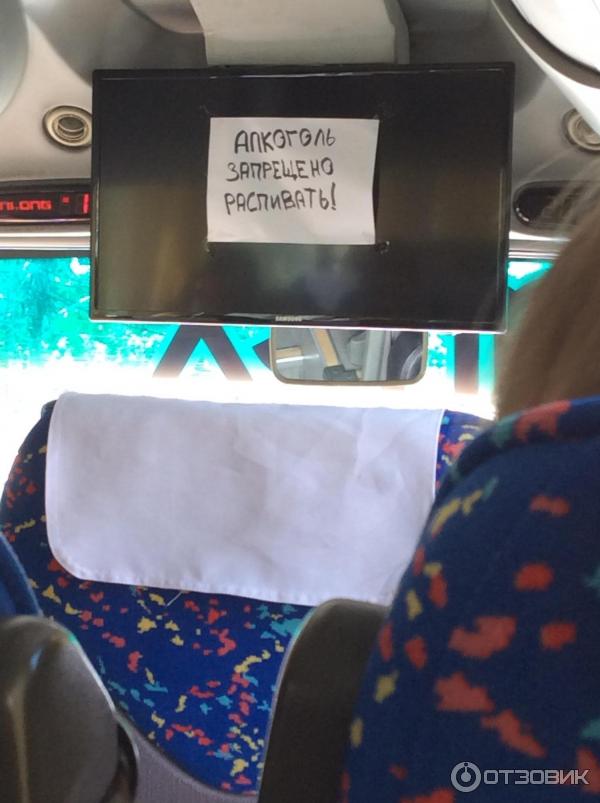 АЛКОГОЛЬ
ЗАПРЕЩЕНО
РАСПИВАТЬ!
SAMSUNG
ОТЗОВИК